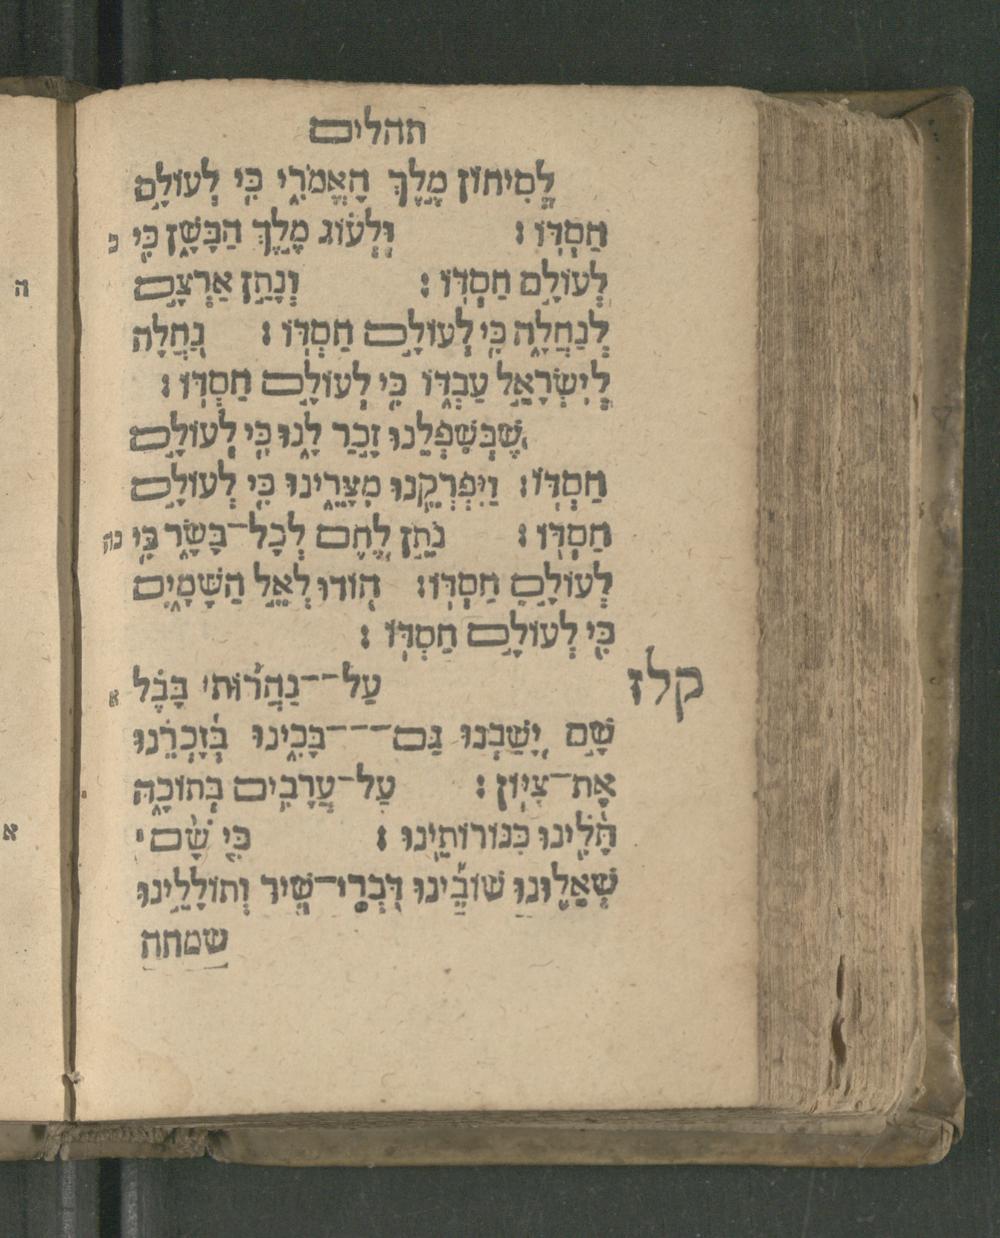 תהלים
לְסִיחוֹן מֶלֶךְ הָאֱמֹרִי כִּי לְעוֹלָם
חַסְדּוֹ : וּלְעוֹג מֶלֶךְ הַבָּשָׁן כִּי כ
לְעוֹלָם חַסְדּוֹ : וְנָתַן אַרְצָם
לְנַחֲלָה כִּי לְעוֹלָם חַסְדּוֹ : נַחֲלָה
לְיִשְׂרָאֵל עַבְדּוֹ כִּי לְעוֹלָם חַסְדּוֹ :
שֶׁבְּשִׁפְלֵנוּ זָכַר לָנוּ כִּי לְעוֹלָם
חַסְדּוֹ : וַיִּפְרְקֵנוּ מִצָּרֵינוּ כִּי לְעוֹלָם
חַסְדּוֹ : נֹתֵן לֶחֶם לְכָל־בָּשָׂר כִּי כה
לְעוֹלָם חַסְדּוֹ : הוֹדוּ לְאֵל הַשָּׁמָיִם
כִּי לְעוֹלָם חַסְדּוֹ :
קלז עַל־־נַהֲרוֹת׳ בָּבֶל א
שָׁם יָשַׁבְנוּ גַּם־־־בָּכִינוּ בְּזָכְרֵנוּ
אֶת־צִיּוֹן : עַל־עֲרָבִים בְּתוֹכָהּ
תָּלִינוּ כִּנּוֹרוֹתֵינוּ : כִּי שָׁם׳
שְׁאֵלוּנוּ שׁוֹבֵינוּ דִּבְרֵי־שִׁיר וְתוֹלָלֵינוּ
שמחה
ה
א